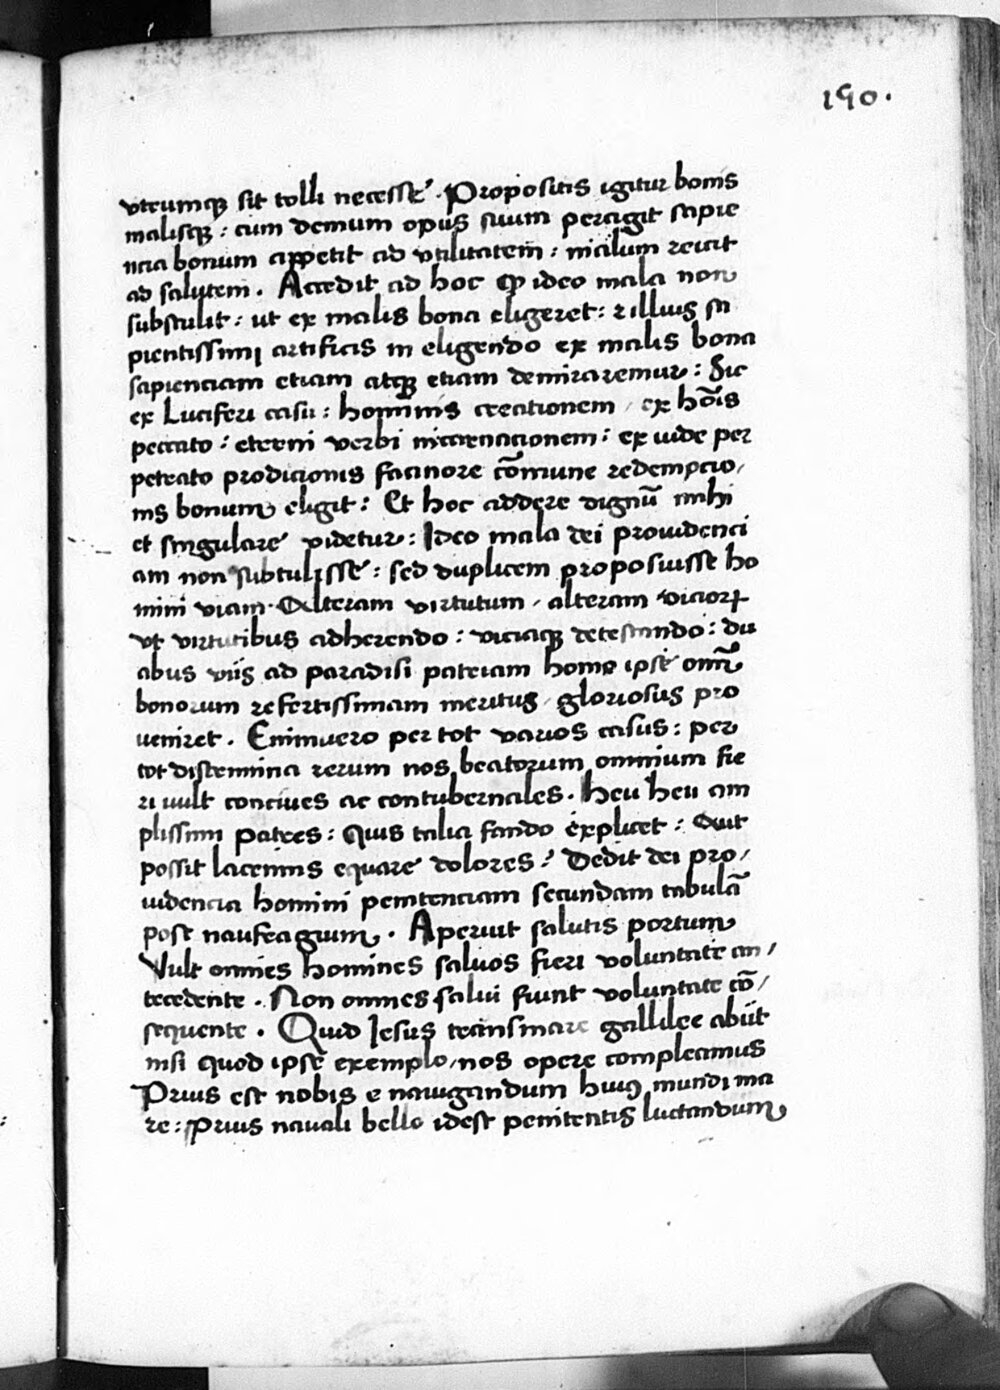 190.
vtrumqꝫ sit tolli necesse. Propositis igitur bonis
malisqꝫ: cum demum opus suum peragit sapie
ncia bonum appetit ad vtilitatem: malum reicit
ad salutem. Accedit ad hoc ꝙ ideo mala non
substulit: ut ex malis bona eligeret: ⁊ illius sa
pientissimi artificis in eligendo ex malis bona
sapienciam etiam atqꝫ etiam demiraremur: Sic
ex Luciferi casu: hominis creationem / ex hōis
peccato: eterni verbi incarnacionem: ex iude per
petrato prodicionis facinore cōmune redempcio/
nis bonum eligit: Et hoc addere dignū mihi
et singulare videtur: Ideo mala dei prouidenci
am non subtulisse: sed duplicem proposuisse ho
mini viam. Alteram virtutum / alteram vicioꝝ
vt virtutibus adherendo: viciaqꝫ detestando: du
abus viis ad paradisi patriam homo ipse omī
bonorum refertissimam meritus / gloriosus pro
ueniret. Enimuero per tot varios casus: per
tot discrimina rerum nos beatorum omnium fie
ri uult conciues ac contubernales. Heu heu am
plissimi patres: Quis talia fando explicet: Aut
possit lacrimis equare dolores? Dedit dei pro/
uidencia homini penitenciam secundam tabulā
post naufragium. Aperuit salutis portum
Vult omnes homines saluos fieri voluntate an/
tecedente. Non omnes salui fiunt voluntate cō/
sequente. Quid Iesus transmare gallilee abiit
nisi quod ipse exemplo / nos opere compleamus
Prius est nobis e nauigandum huiꝯ mundi ma
re: Prius nauali bello idest penitentis luctandum